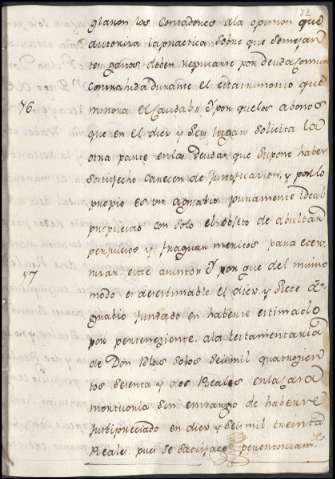 glaron los Contadores ala opinion que
autoriza la practica sobre que semejan
tes gastos deben reputarse por deuda comun
contrahida durante el matrimonio que
76 minora el caudal: Y por que los abonos
que en el diez y seis lugar solicita la
otra parte en las deudas que supone haber
satisfecho carecen de justificacion, y por lo
propio es un agravio puramente ideal
propuesto con solo el objeto de abultar
perjuicios y fraguar meritos para eter
77 nizar este asunto: Y por que del mismo
modo es desestimable el diez y siete a
gravio fundado en haberse estimado
por perteneciente ala testamentaria
de Don Blas solos seis mil quatrocien
tos setenta y dos Reales en la casa
mortuoria sin embargo de haberse
justipreciado en diez y seis mil treinta
Reales pues se satisface perentoriam.te